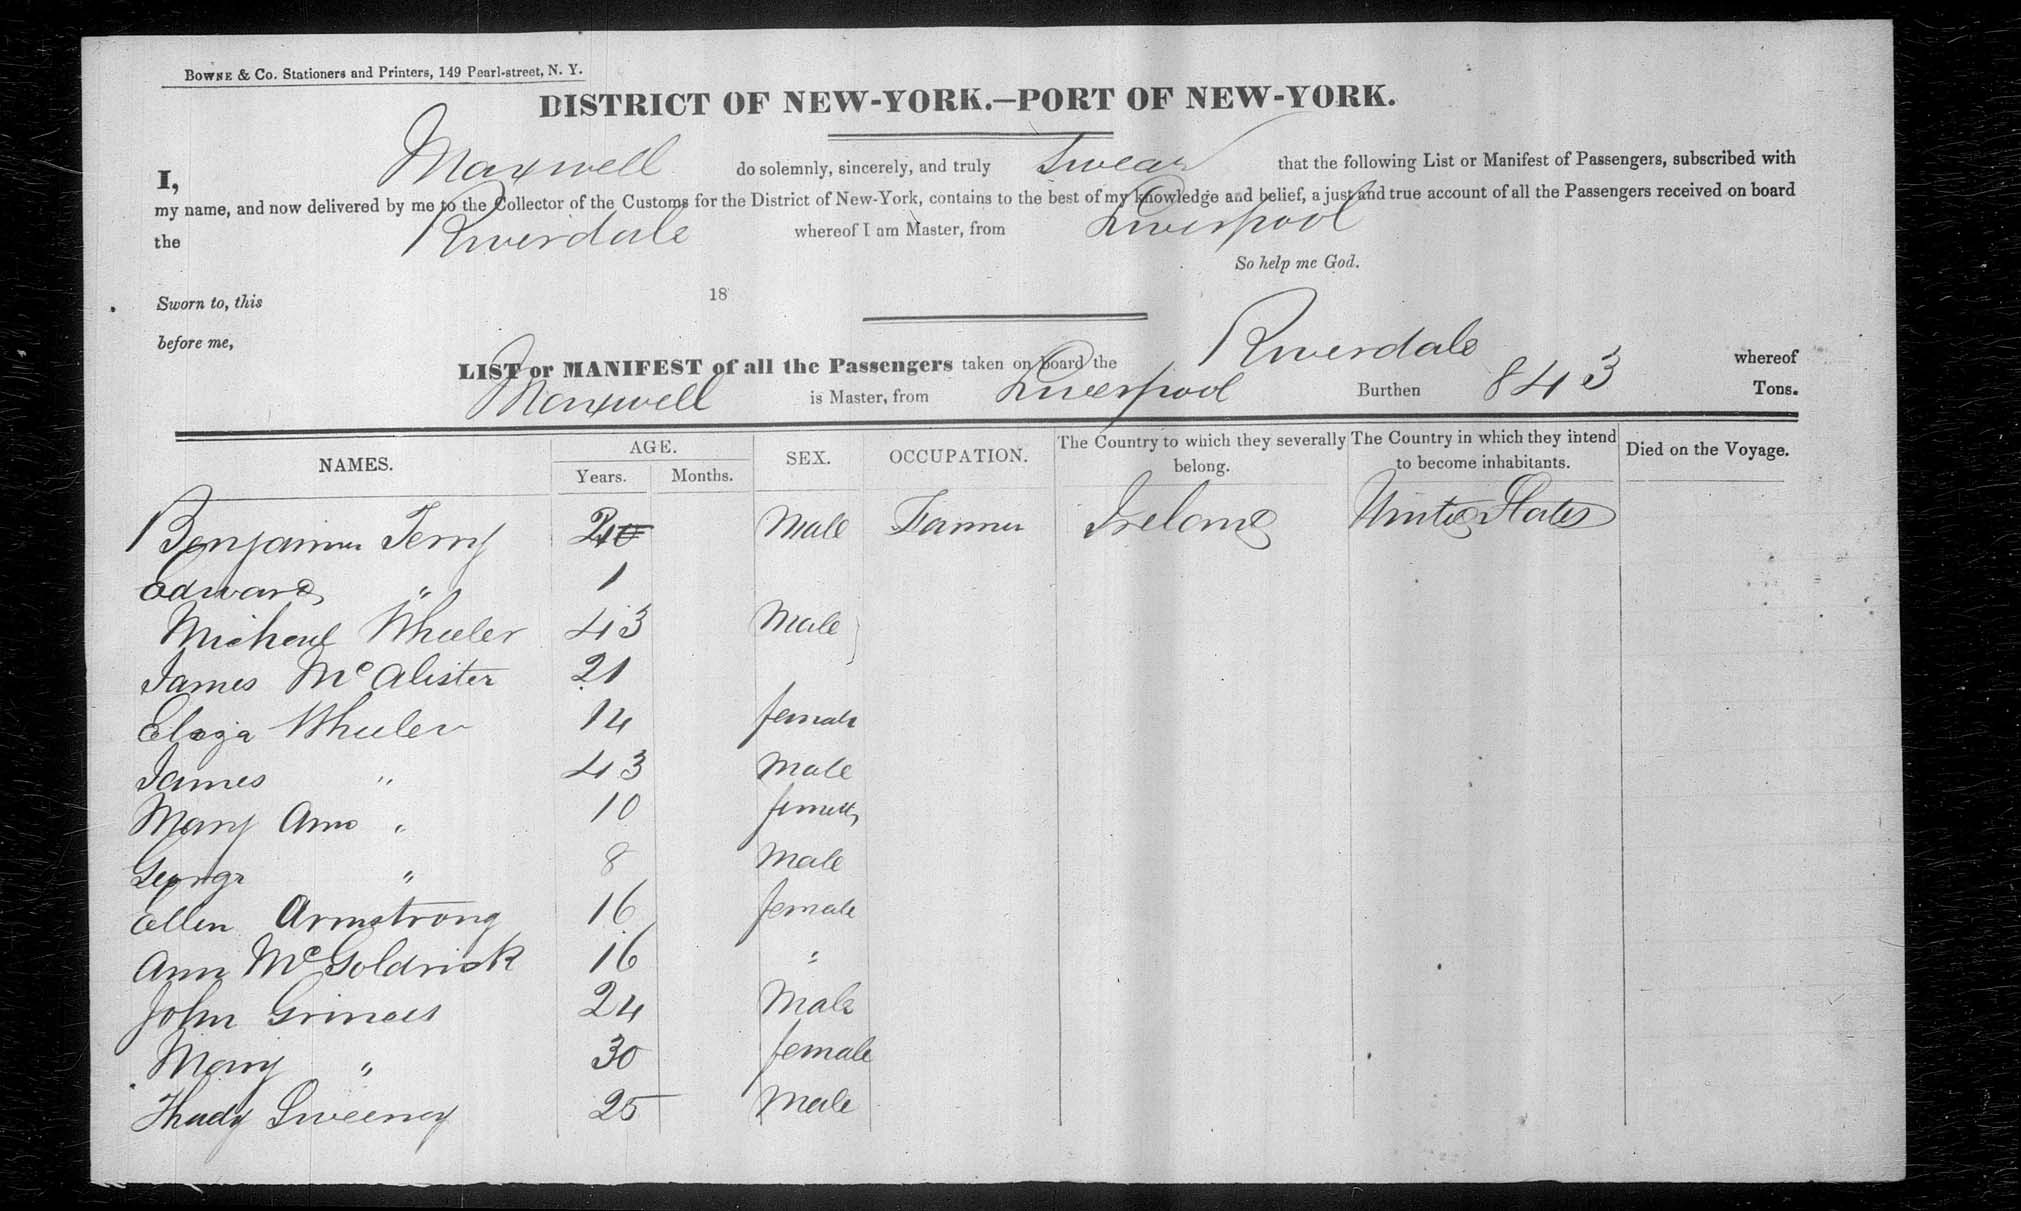 BOWNE & CO. Stationers and Printers, 149 Pearl-street, N. Y.
DISTRICT OF NEW-YORK.—PORT OF NEW-YORK.
I, Maxwell do solemnly, sincerely, and truly Swear that the following List or Manifest of Passengers, subscribed with
my name, and now delivered by me to the Collector of the Customs for the District of New-York, contains to the best of my knowledge and belief, a just and true account of all the Passengers received on board
the Riverdale whereof I am Master, from Liverpool
So help me God.
Sworn to, this 18
before me,
LIST or MANIFEST of all the Passengers taken on board the Riverdale whereof
Maxwell is Master, from Liverpool Burthen 843 Tons.
NAMES. AGE. Years. Months. SEX. OCCUPATION. The Country to which they severally belong. The Country in which they intend to become inhabitants. Died on the Voyage.
Benjamin Male Farmer Ireland United States
Edward " 1
Michael Wheeler 43 Male
James McAlister 21
Eliza Wheeler 14 female
James " 43 Male
Mary Ann " 10 female
George " 8 Male
Ellen Armstrong 16 female
Ann McGoldrick 16 "
John 24 Male
Mary " 30 female
Thady Sweeney 25 Male